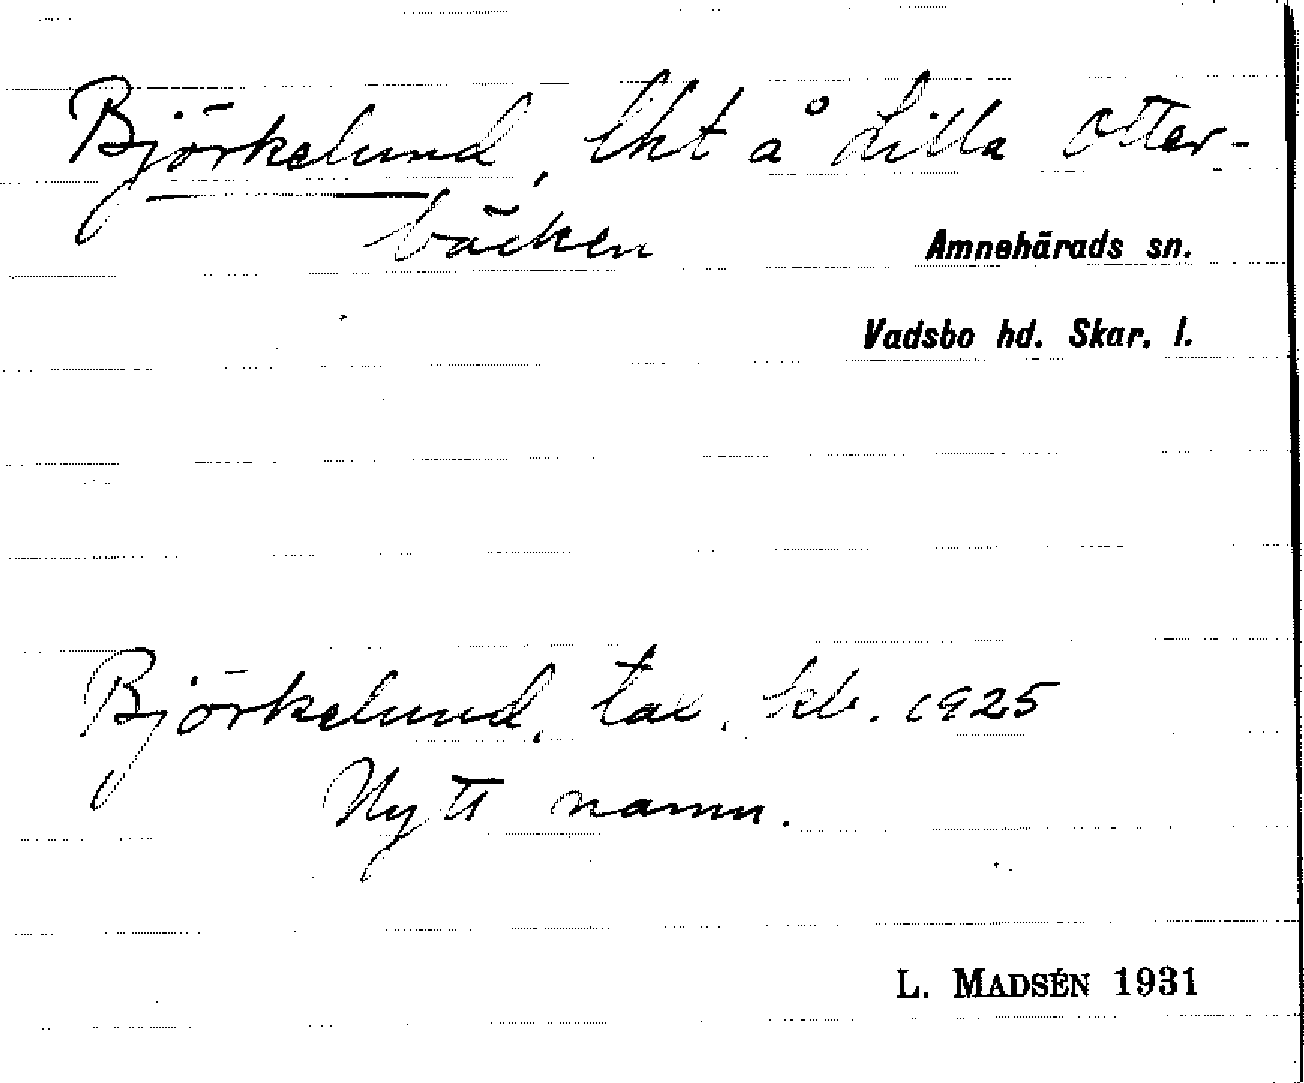 Björkelund, lht å Lilla Otter-
bäcken
Amnehärads sn.
Vadsbo hd. Skar. l.
Björkelund, tax. kb. 1925
Nytt namn.
L. MADSÉN 1931